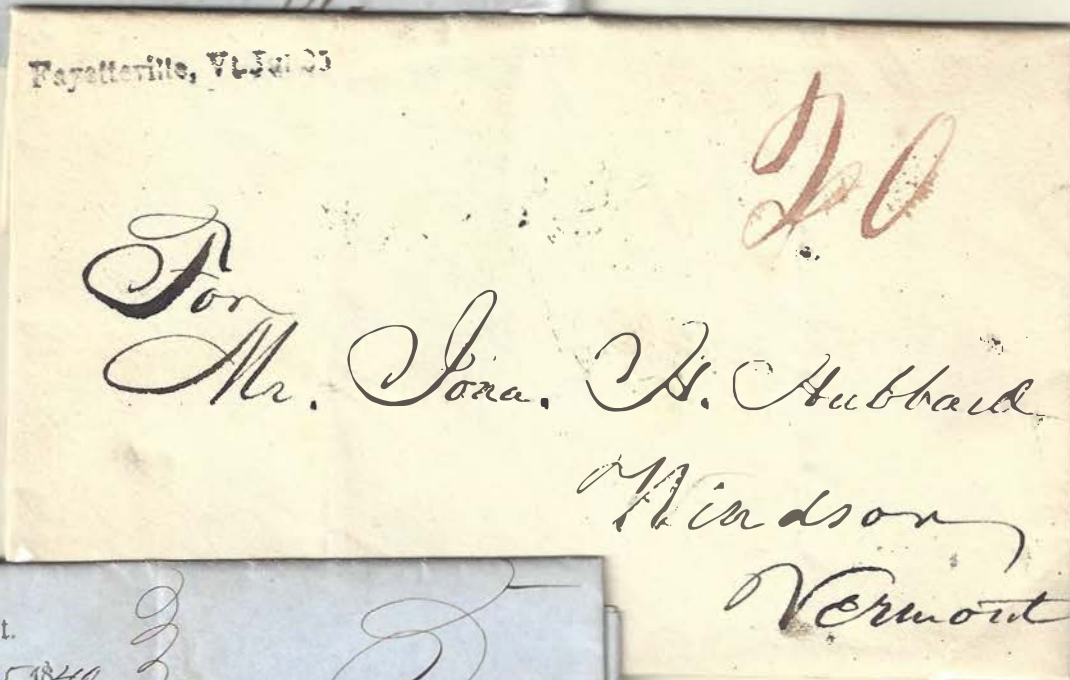 Fayetteville, Vt. Jul 25
20
For
Mr. Jona. H. Hubbard
Windsor,
Vermont
t.
1840